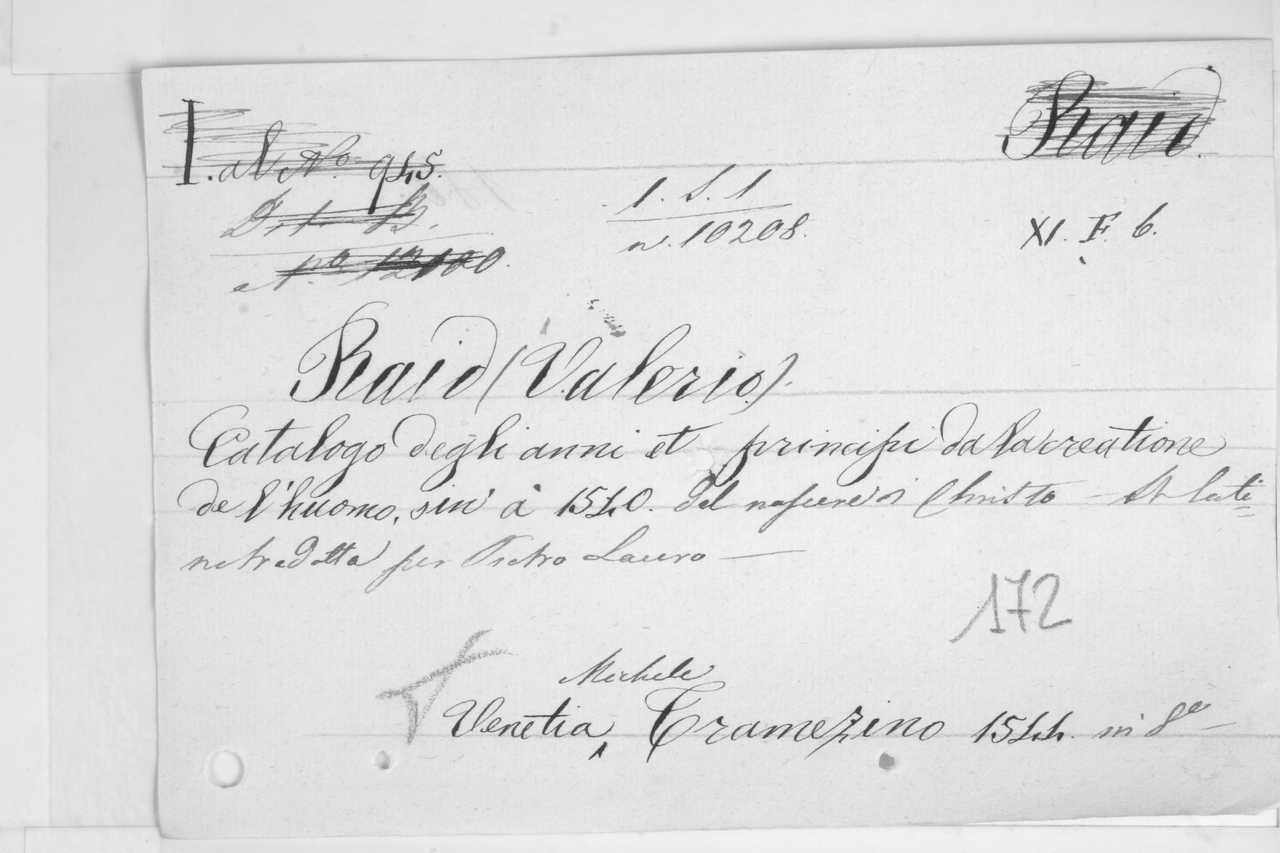 I. al No. 945.
Raid
No. 12100.
1. S. 1
n. 10208.
XI. F. 6.
Raid (Valerio).
Catalogo degli anni et principi da la creatione
de l'huomo, sin' à 1540. del nascere di Christo — di lati=
no tradotta per Pietro Lauro —
172
Michele
Venetia, Tramezino 1544. in 8º